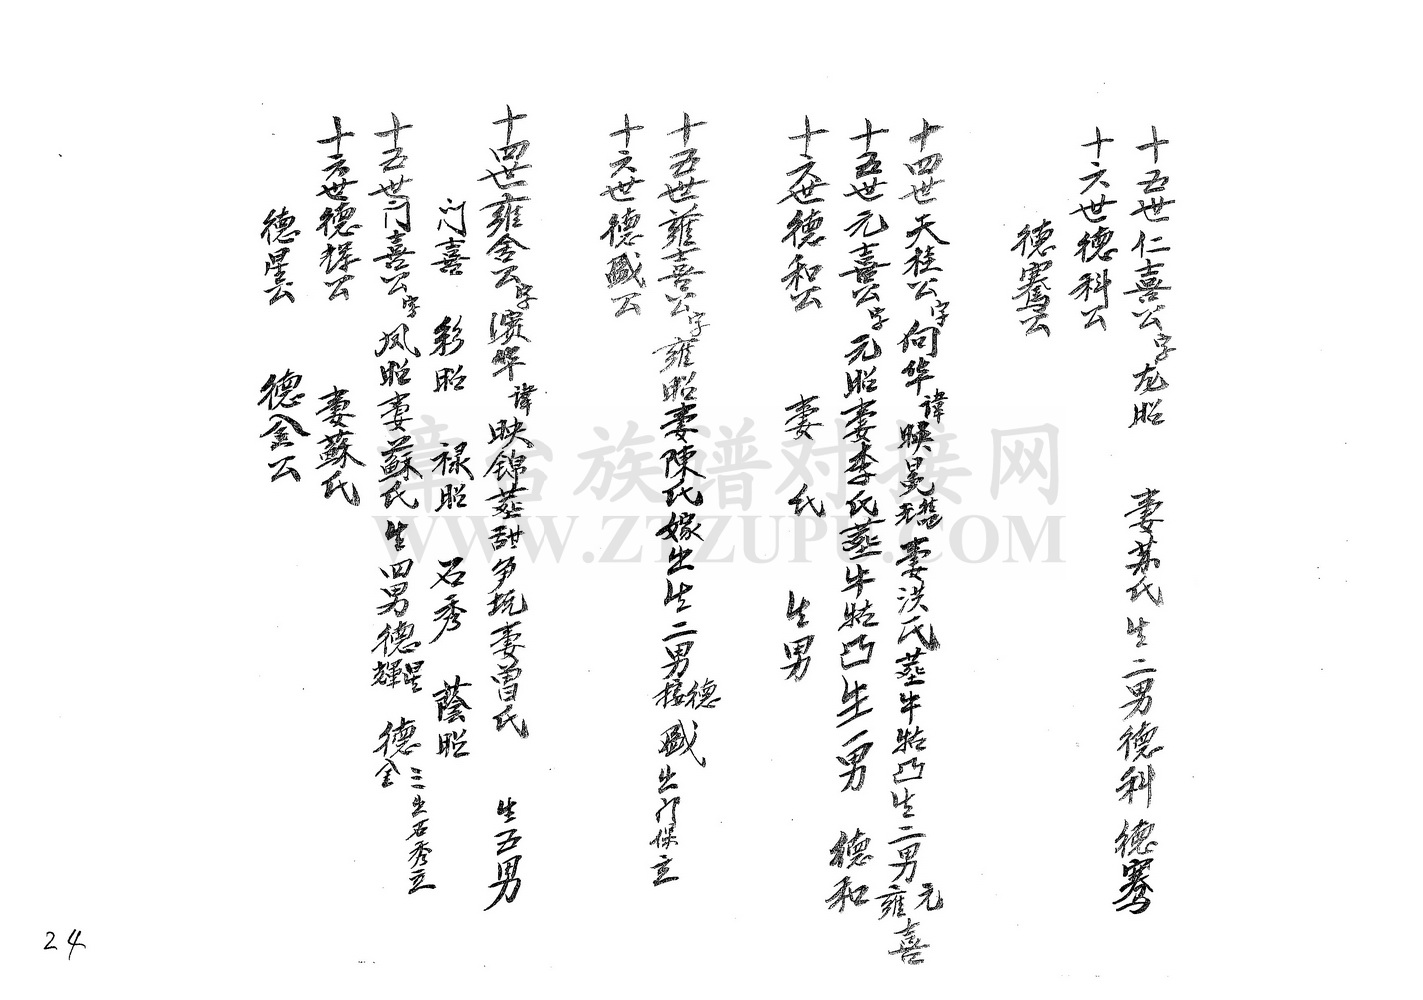 十五世仁喜公字左昭 妻苏氏 生二男德科 德騫
十六世德科公
德騫公
十四世天桂公字向华諱映晃 妻洪氏墓牛牯凸生二男元雍喜
十五世元喜公字元昭妻李氏墓牛牯凸生一男 德和
十六世德和公 妻 氏 生男
十五世雍喜公字雍昭妻陳氏嫁出生二男德 盛出 保立
十六世德盛公
十四世雍舍公字濱华諱映錦墓甜笋坑妻曾氏 生五男
门喜 彩昭 禄昭 石秀 蔭昭
十五世门喜公字凤昭妻蘇氏生四男德星輝 德金 三出石秀立
十六世德輝公 妻蘇氏
德星公 德金公
章台族谱对接网
WWW.ZTZUPU.COM
24